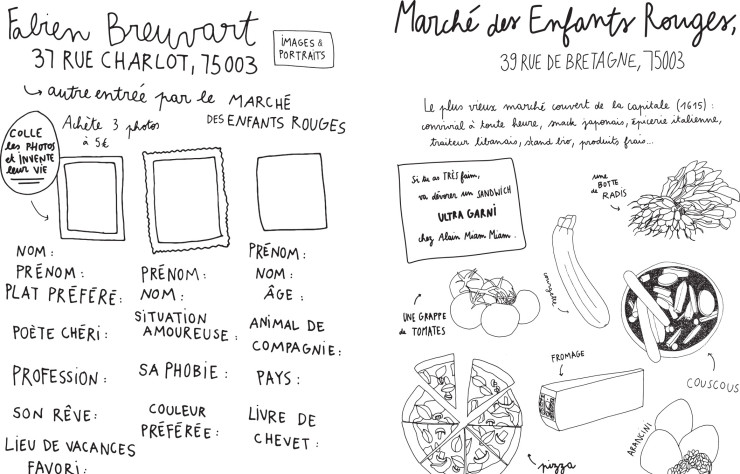 Fabien Breuvart
37 RUE CHARLOT, 75003
IMAGES &
PORTRAITS
autre entrée par le MARCHÉ
DES ENFANTS ROUGES
COLLE
les PHOTOS
et INVENTE
leur VIE
Achète 3 photos
à 5€
NOM :
PRÉNOM :
PLAT PRÉFÉRÉ :
POÈTE CHÉRI :
PROFESSION :
SON RÊVE :
LIEU DE VACANCES
FAVORI :
PRÉNOM :
NOM :
SITUATION
AMOUREUSE :
SA PHOBIE :
COULEUR
PRÉFÉRÉE :
PRÉNOM :
NOM :
ÂGE :
ANIMAL DE
COMPAGNIE :
PAYS :
LIVRE DE
CHEVET :
Marché des Enfants Rouges,
39 RUE DE BRETAGNE, 75003
Le plus vieux marché couvert de la capitale (1615) :
convivial à toute heure, snack japonais, épicerie italienne,
traiteur libanais, stand bio, produits frais...
Si tu as TRÈS faim,
va dévorer un SANDWICH
ULTRA GARNI
chez Alain Miam Miam.
une
BOTTE
de RADIS
courgette
UNE GRAPPE
de TOMATES
FROMAGE
COUSCOUS
ARANCINI
pizza